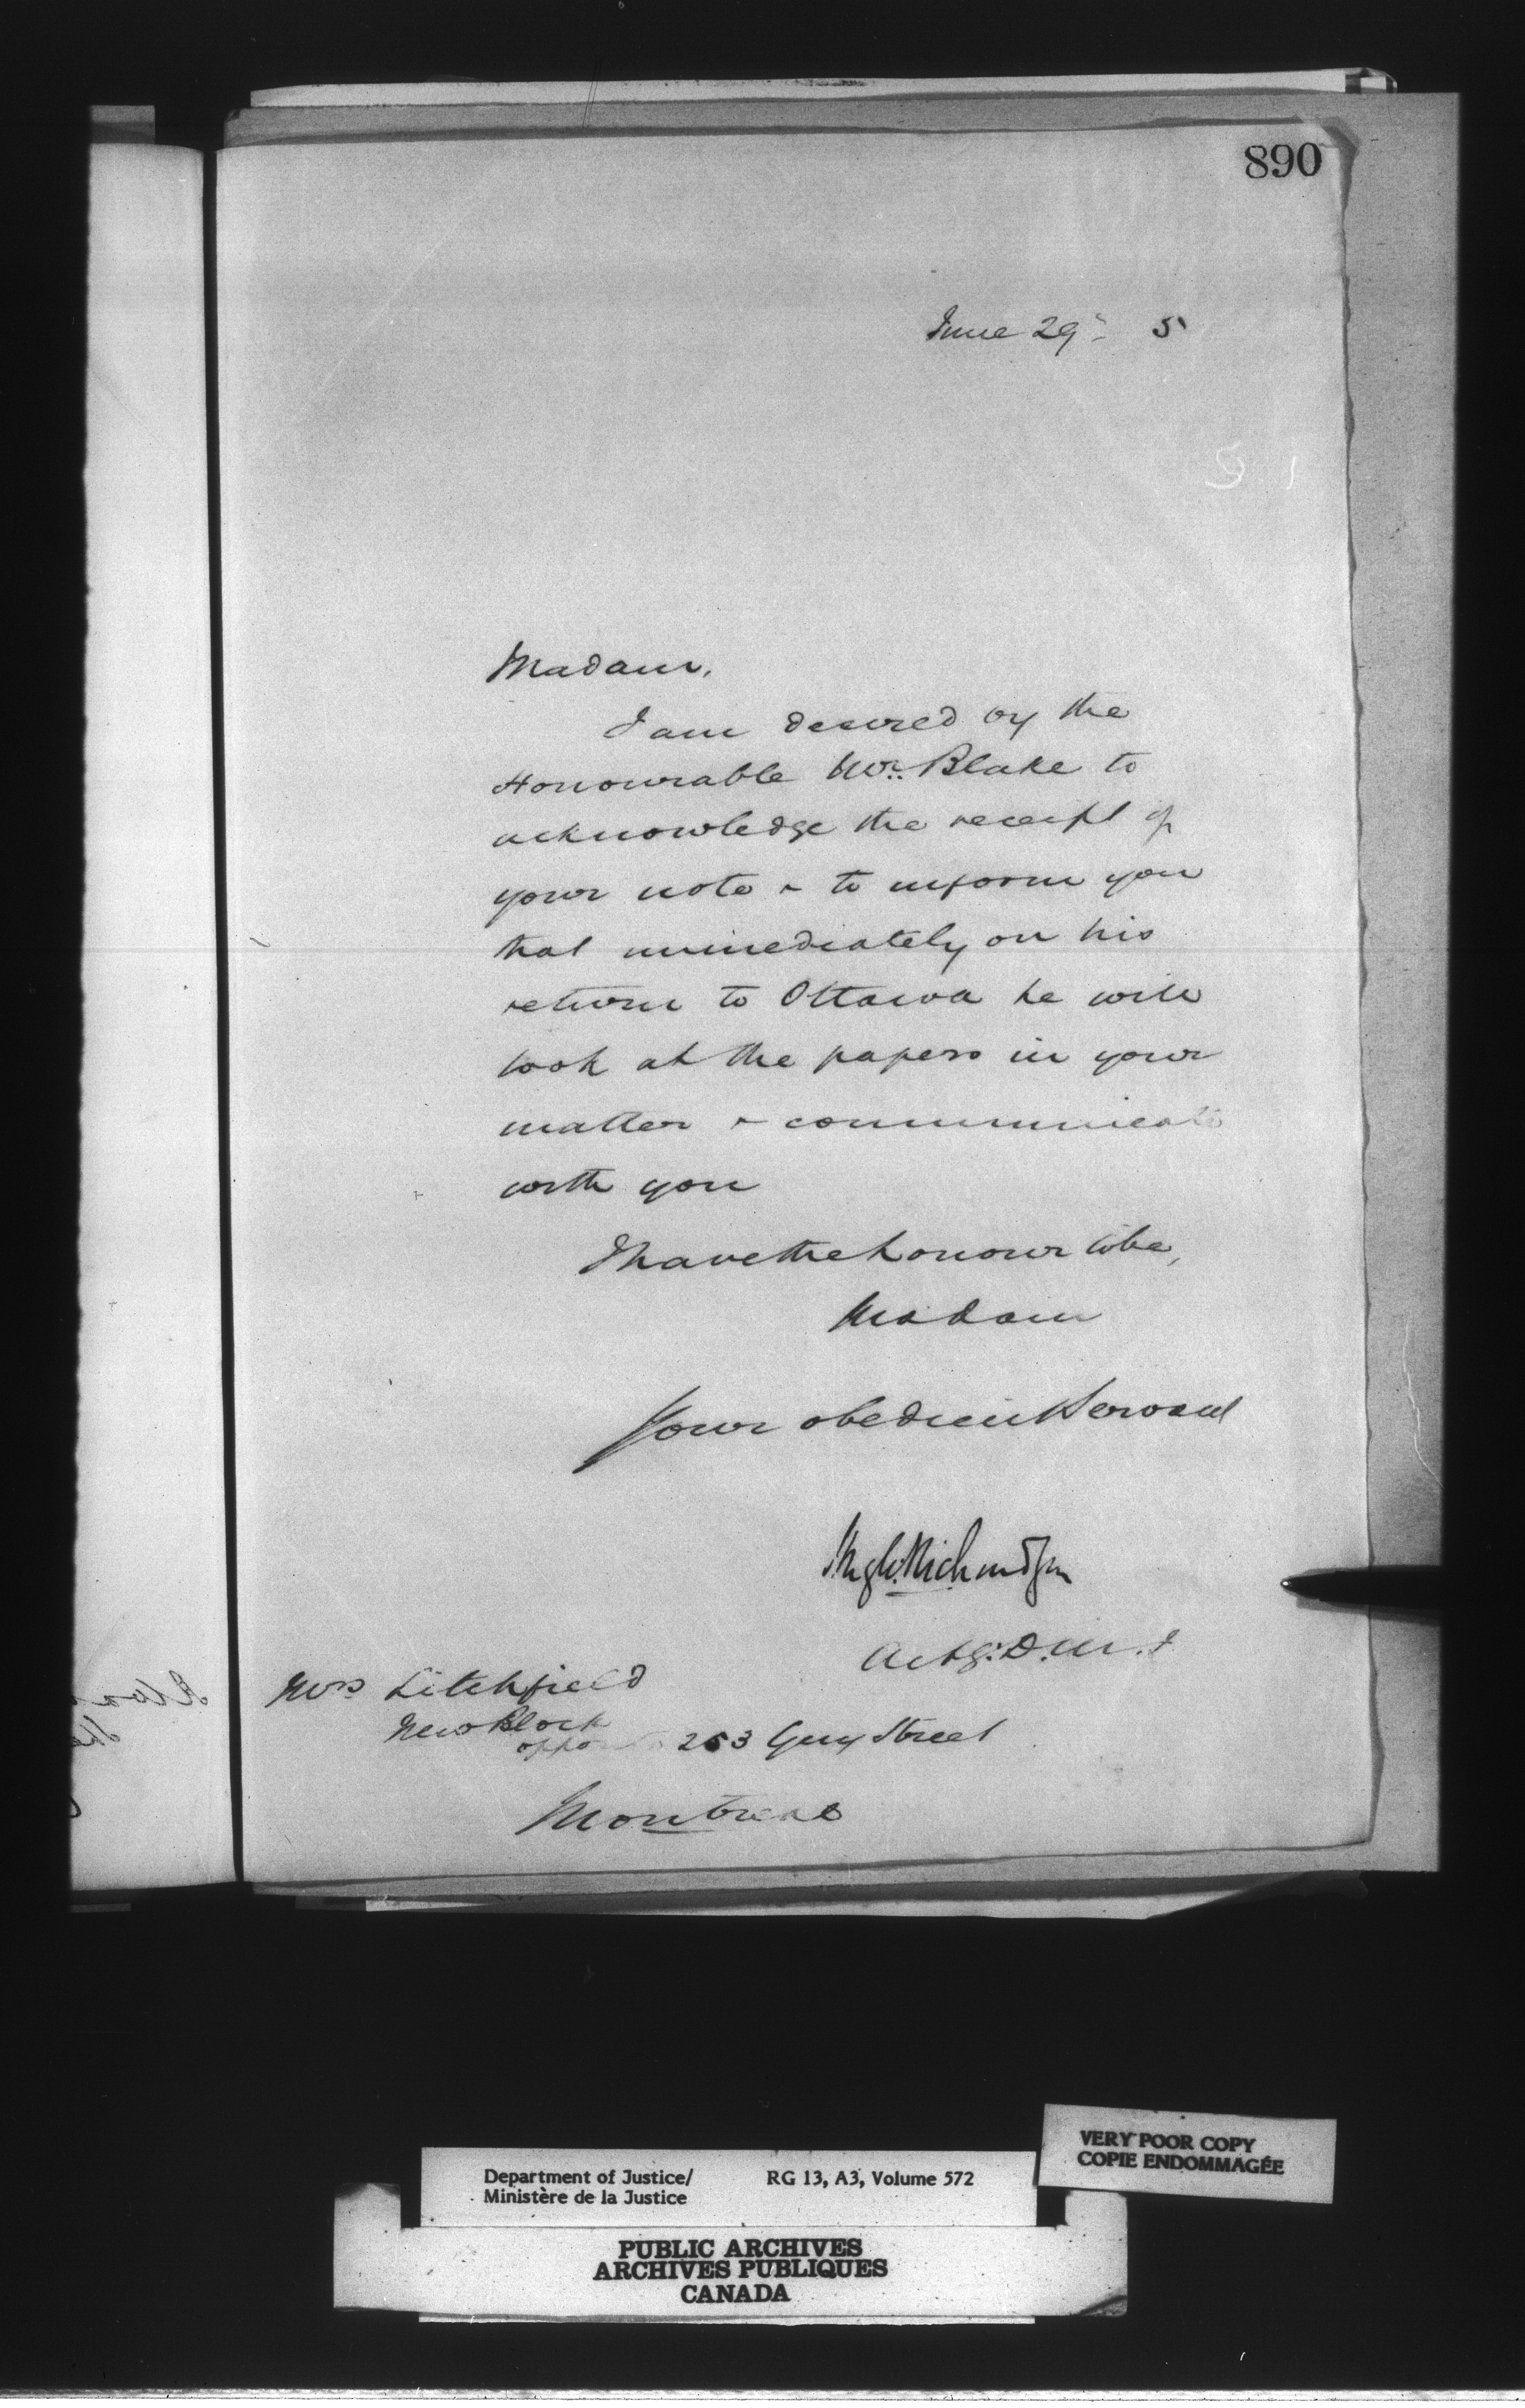 890
June 29th 5
Madam,
I am desired by the
Honourable Mr. Blake to
acknowledge the receipt of
your note & to inform you
that immediately on his
return to Ottawa he will
look at the papers in your
matter & communicate
with you
I have the honour to be,
Madam
Your obedient Servant
Hugh Richardson
Actg. D.M.J
Mrs Litchfield
New Block
253 Guy Street
Montreal
VERY POOR COPY
COPIE ENDOMMAGÉE
Department of Justice/ RG 13, A3, Volume 572
Ministère de la Justice
PUBLIC ARCHIVES
ARCHIVES PUBLIQUES
CANADA